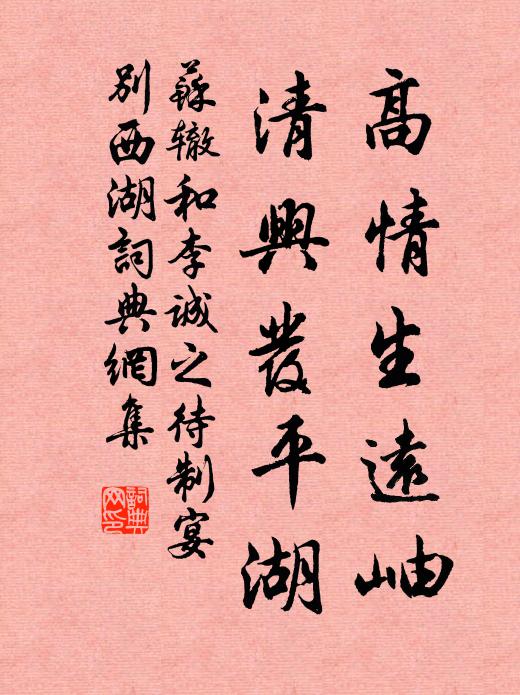 高情生遠岫
清興發平湖
蘇辙和李诚之待制宴
别西湖詞典網集
詞典
网印